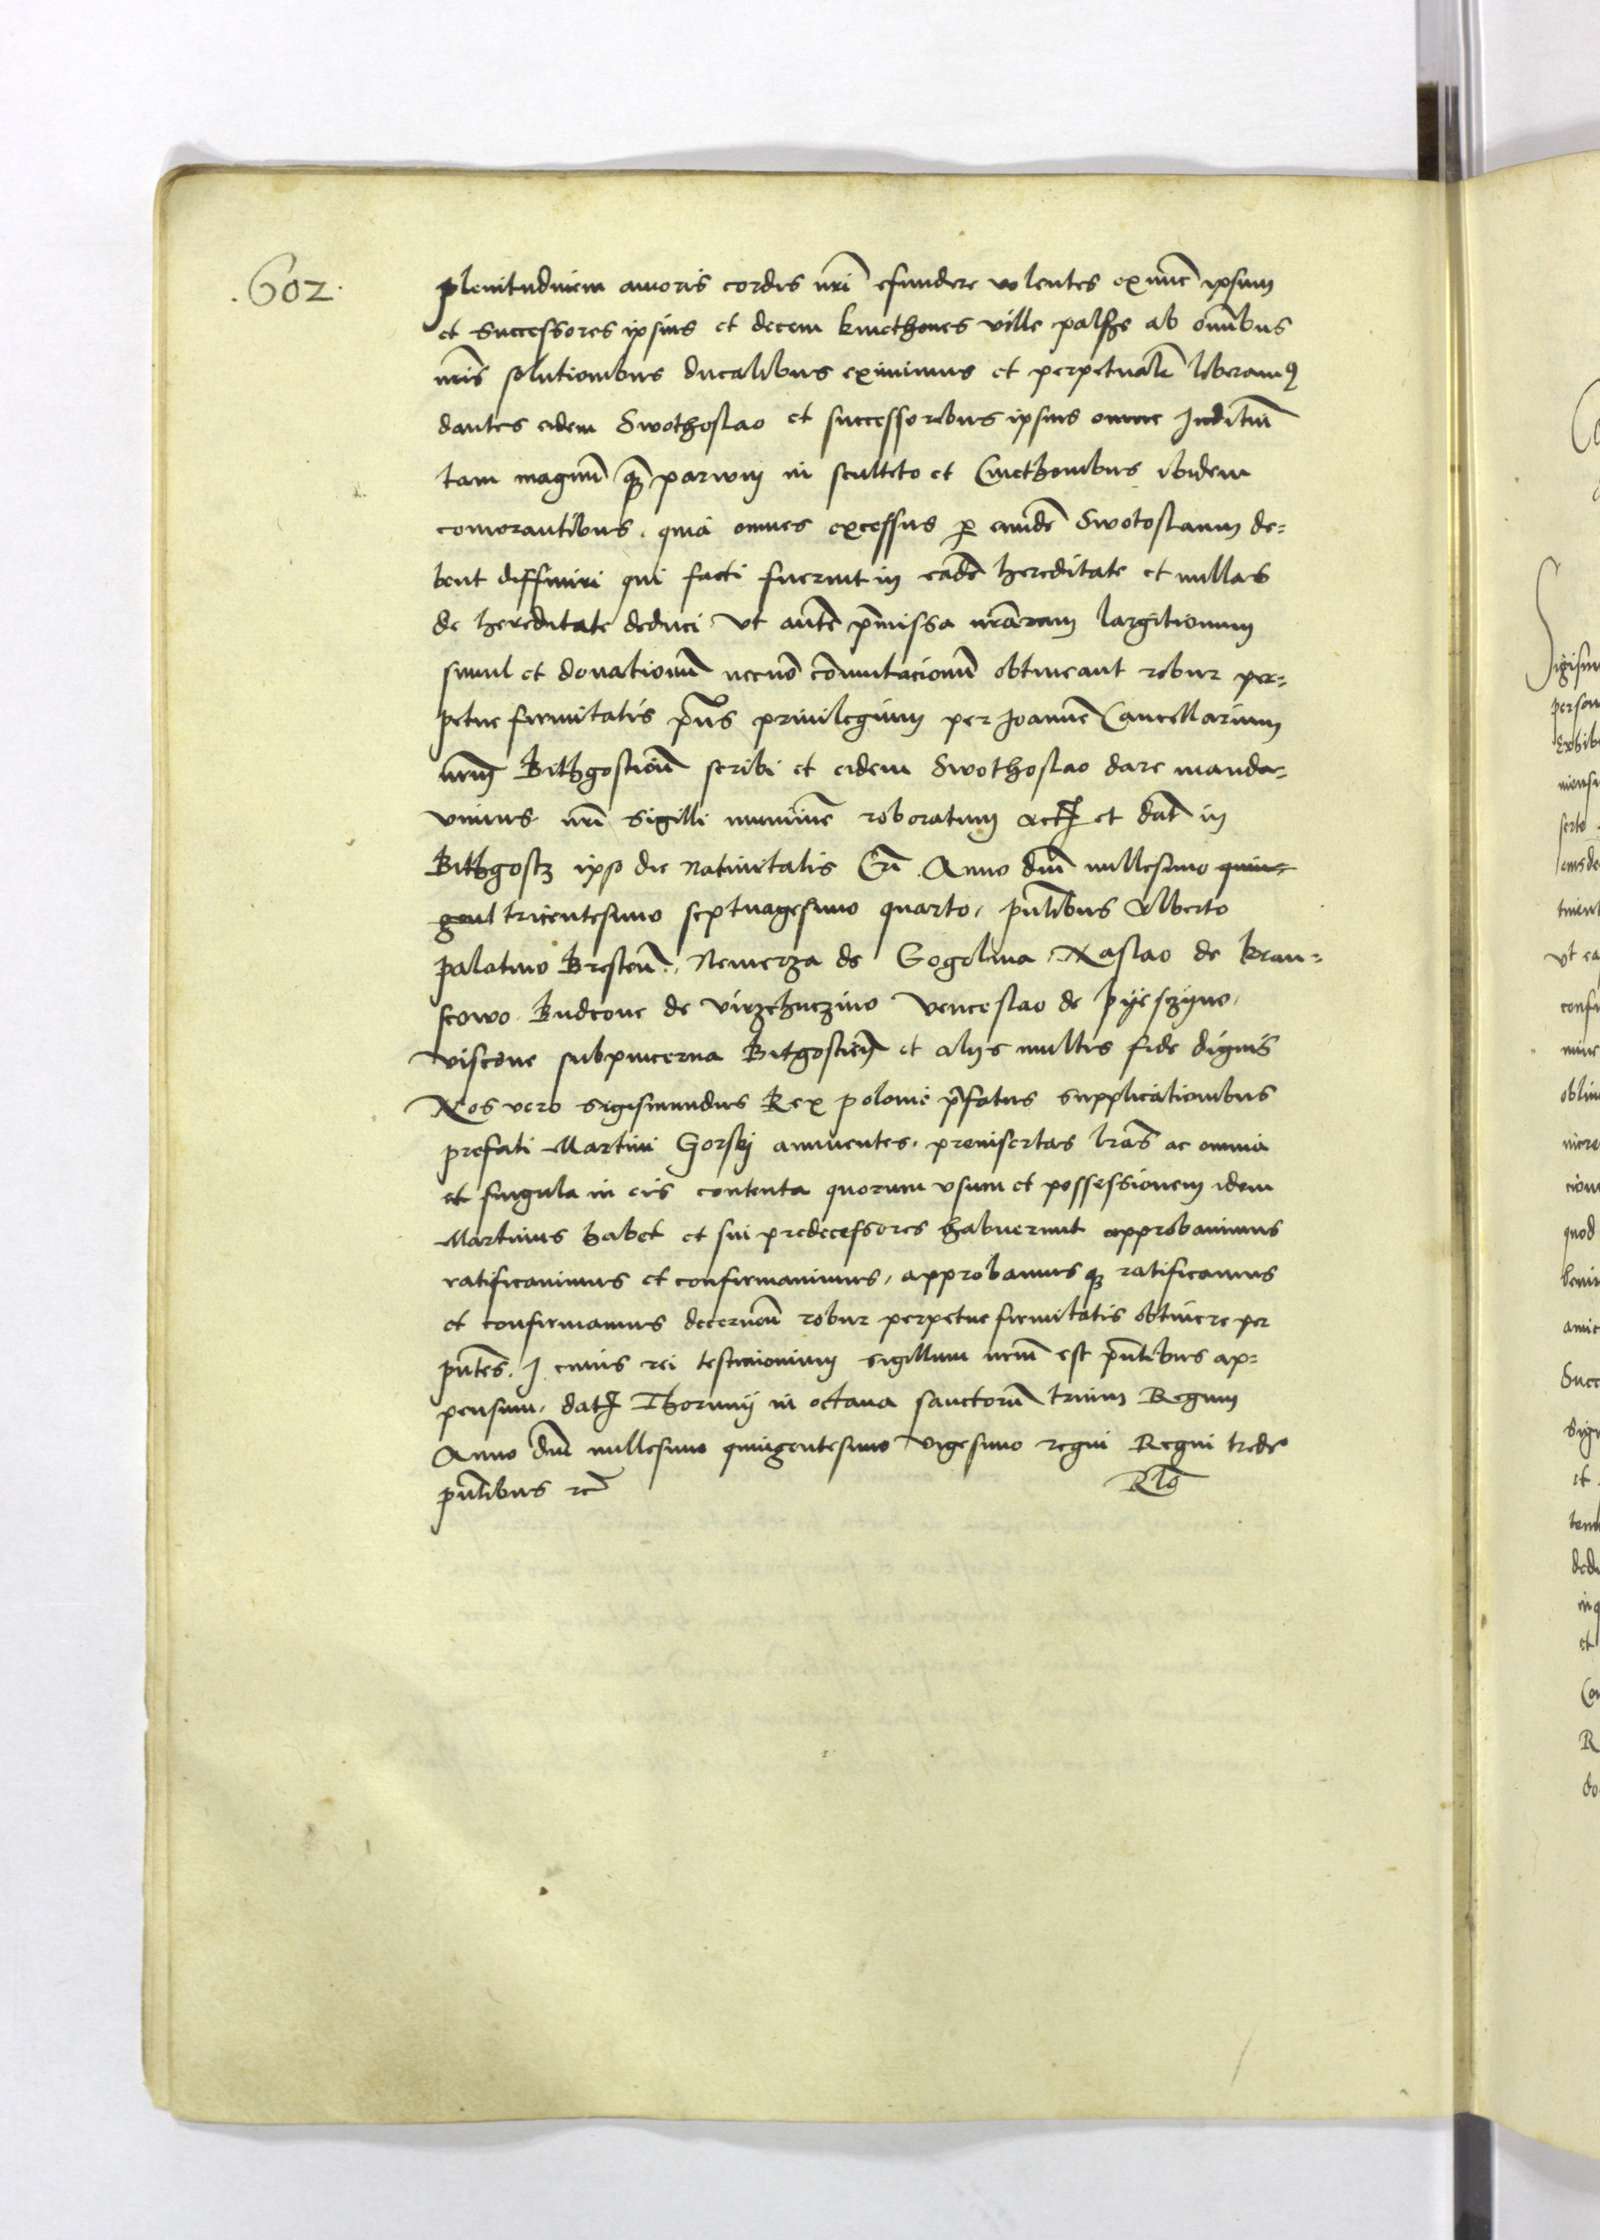 .602.
plenitudinem amoris cordis nrī efundere volentes exnūc ipsum
et successores ipsius et decem kmethones ville palsche ab omībus
nrīs solutionibus ducalibus eximimus et perpetualr̄ liberamꝯ
dantes eidem Swothoslao et successoribus ipsius omne Juditiū
tam magnū quā parwm in sculteto et Cmethonibus ibidem
comorantibus. quia omnes excessus ꝑ eundē Swotoslaum de-
bent diffiniri qui facti fuerint in eadē hereditate et nullas
de hereditate deduci Ut autē pr̄missa nrārum largitionum
simul et donationū necnō cōmutacionū obtineant robur per-
petue firmitatis pn̄s privilegium per Joannē Cancellarium
nrm̄ Bithgosticn̄ scribi et eidem Swothoslao dare manda-
vimus nrī sigilli muninē roboratum Act et dat̄ in
Bithgostz ipso die Nativitatis Cri Anno dnī millesimo quin-
gent tricentesimo septuagesimo quarto, pn̄tibus Alberto
palatino Bresten̄. Nemerza de Gogolina, Naslao de Kran-
scowo. Budcone de virzchuczino Venceslao de pyesczyno,
viscone subpincerna Bitgosticn̄ et alys multis fide dignis
Nos vero Sigismundus Rex polonie pr̄fatus supplicationibus
prefati Martini Gorsky annuentes, preinsertas lrās ac omnia
et singula in eis contenta quorum usum et possessionem idem
Martinus habet et sui predecessores habuerunt approbavimus
ratificavimus et confirmavimus, approbamusqꝫ ratificamus
et confirmamus decernen̄ robur perpetue firmitatis obtinere per
pn̄tes. I cuius rei testimonium sigillum nrm̄ est pn̄tibus ap-
pensum, dat Thoruny in octava sanctorū trium Regum
Anno dnī millesimo quingentesimo vigesimo regni Regni trede°
pn̄tibus rc̄ Rlō